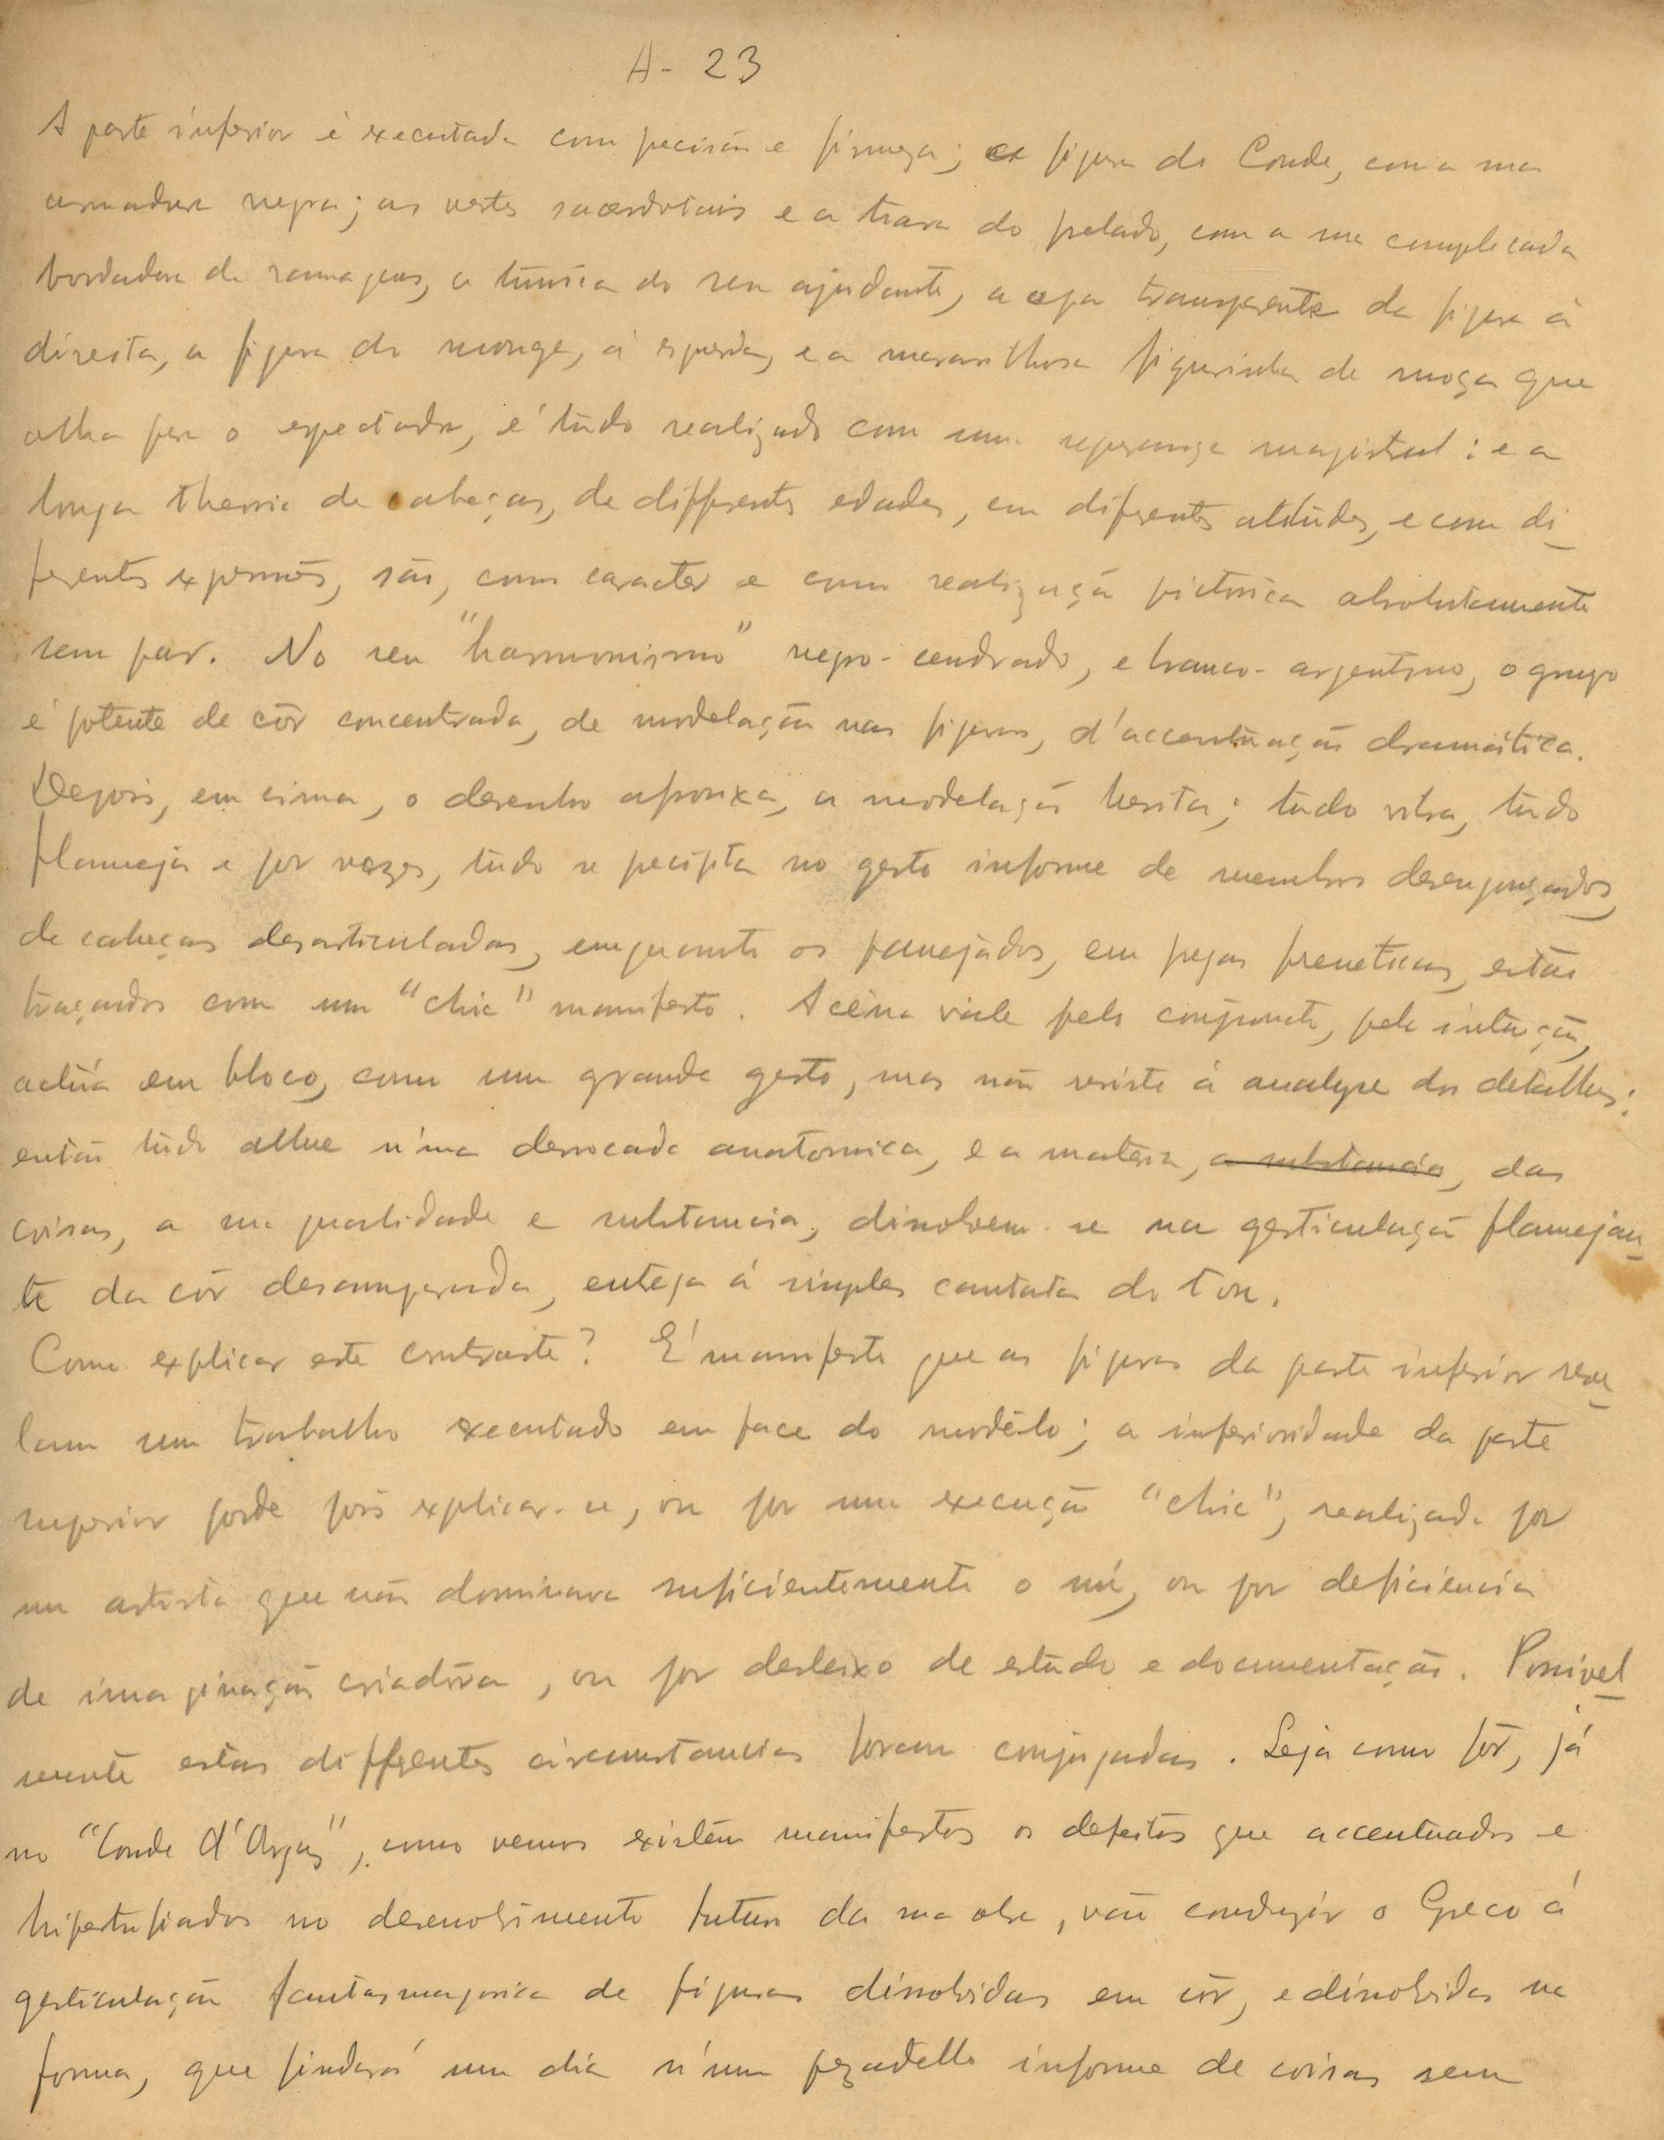 A - 23
A parte inferior é executada com precisão e firmeza; a figura do Conde, com a sua
armadura negra; as vestes sacerdotais e a tiara do prelado, com a sua complicada
bordadura de ramagens, a túnica do seu ajudante, a capa transparente da figura à
direita, a figura do monge, á esquerda, e a maravilhosa figurinha de moça que
olha para o espectador, é túdo realizado com uma segurança magistral: e a
longa theoria de cabeças, de differentes edades, em diferentes atitúdes, e com di-
ferentes expressões, são, como caracter e como realização pictórica absolutamente
sem par. No seu "harmonismo" negro-cendrado, e branco-argentino, o grupo
é potente de côr concentrada, de modelação nas figuras, d'accentuação dramática.
Depois, em cima, o desenho afrouxa, a modelação hesita; túdo vibra, túdo
flameja e por vezes, túdo se precipita no gesto informe de membros desengonçados,
de cabeças desarticuladas, emquanto os panejados, em pregas freneticas, estão
traçados com um "chic" manifesto. A cêna vale pelo conjuncto, pela intuição,
actúa em bloco, como um grande gesto, mas não resiste á analyse dos detalhes:
então túdo allue n'uma derrocada anatomica, e a materia, a substancia, das
coisas, a sua qualidade e substancia, dissolvem-se na gesticulação flamejan-
te da côr desamparada, entregue á simples cantata do tom.
Como explicar este contraste? E' manifesto que as figuras da parte inferior reve-
lam um trabalho executado em face do modêlo; a inferioridade da parte
superior pode pois explicar-se, ou por uma execução "chic", realizada por
um artista que não dominava suficientemente o nú, ou por deficiencia
de imaginação criadôra, ou por desleixo de estudo e documentação. Possivel-
mente estas differentes circumstancias foram conjugadas. Seja como fôr, já
no "Conde d'Orgaz", como vemos existem manifestos os defeitos que accentuados e
hipertrofiados no desenvolvimento futuro da sua obra, vão conduzir o Greco á
gesticulação fantasmagorica de figuras dissolvidas em côr, e dissolvidas na
forma, que findará um dia n'um pezadello informe de coisas sem